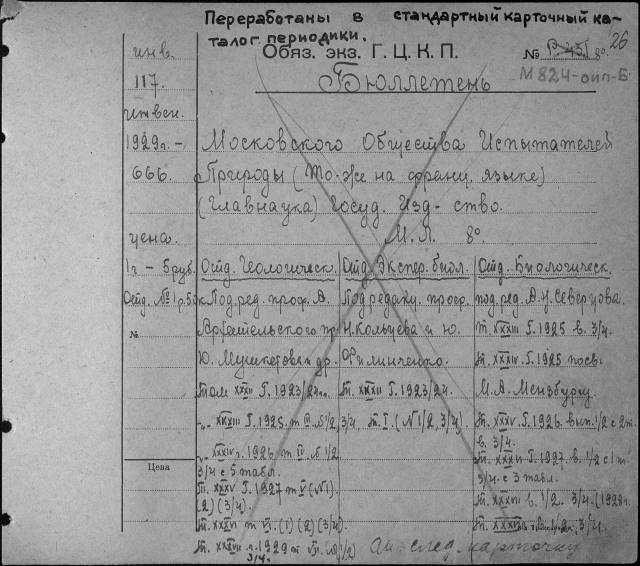 Переработаны в стандартный карточный ка-
талог периодики.
26
Обяз. экз. Г.Ц.К.П.
№ 8º
М824-оип-Б
инв.
117.
Бюллетень
1929г. –
666.
Московского Общества Испытателей
Природы (То-же на франц. языке)
(Главнаука) Госуд. Изд-ство.
М.Л. 8º
цена.
1г – 5 руб.
Отд. №1 р.50к
№
Цена
Отд. Геологическ.
Под. ред. проф. А.
Архангельского пр
Ю. Мушкетова и др.
Том XXXII Г. 1923/24г.
-„- XXXIII Г. 1925. т III. №1/2, 3/4
-„- XXXIV г. 1926 т IV. №1/2
3/4 с 5 табл.
Т. XXXV Г. 1927 т V (№1)
(2) (3/4).
Т. XXXVI т VI. (1) (2) (3/4)
Т. XXXVII г. 1929 т VII. (№1/2)
3/4.
Отд. Экспер. биол.
Под редакц. проф.
Н. Кольцева и Ю.
Филипченко.
Т. XXXII Г. 1923/24.
т. I. (№1/2, 3/4)
Отд. Биологическ.
под. ред. А.Н. Северцова.
Т. XXXIII Г. 1925 в. 3/4.
Т. XXXIV. Г. 1925 посв.
М.А. Мензбиру
Т. XXXV. Г. 1926. вып. 1/2 с 2 т.
в. 3/4.
Т. XXXVI Г. 1927. в. 1/2 с 1 т.
3/4. с 3 табл.
Т. XXXVII в. 1/2. 3/4. (1928г.
3/4.
см. след. карточку